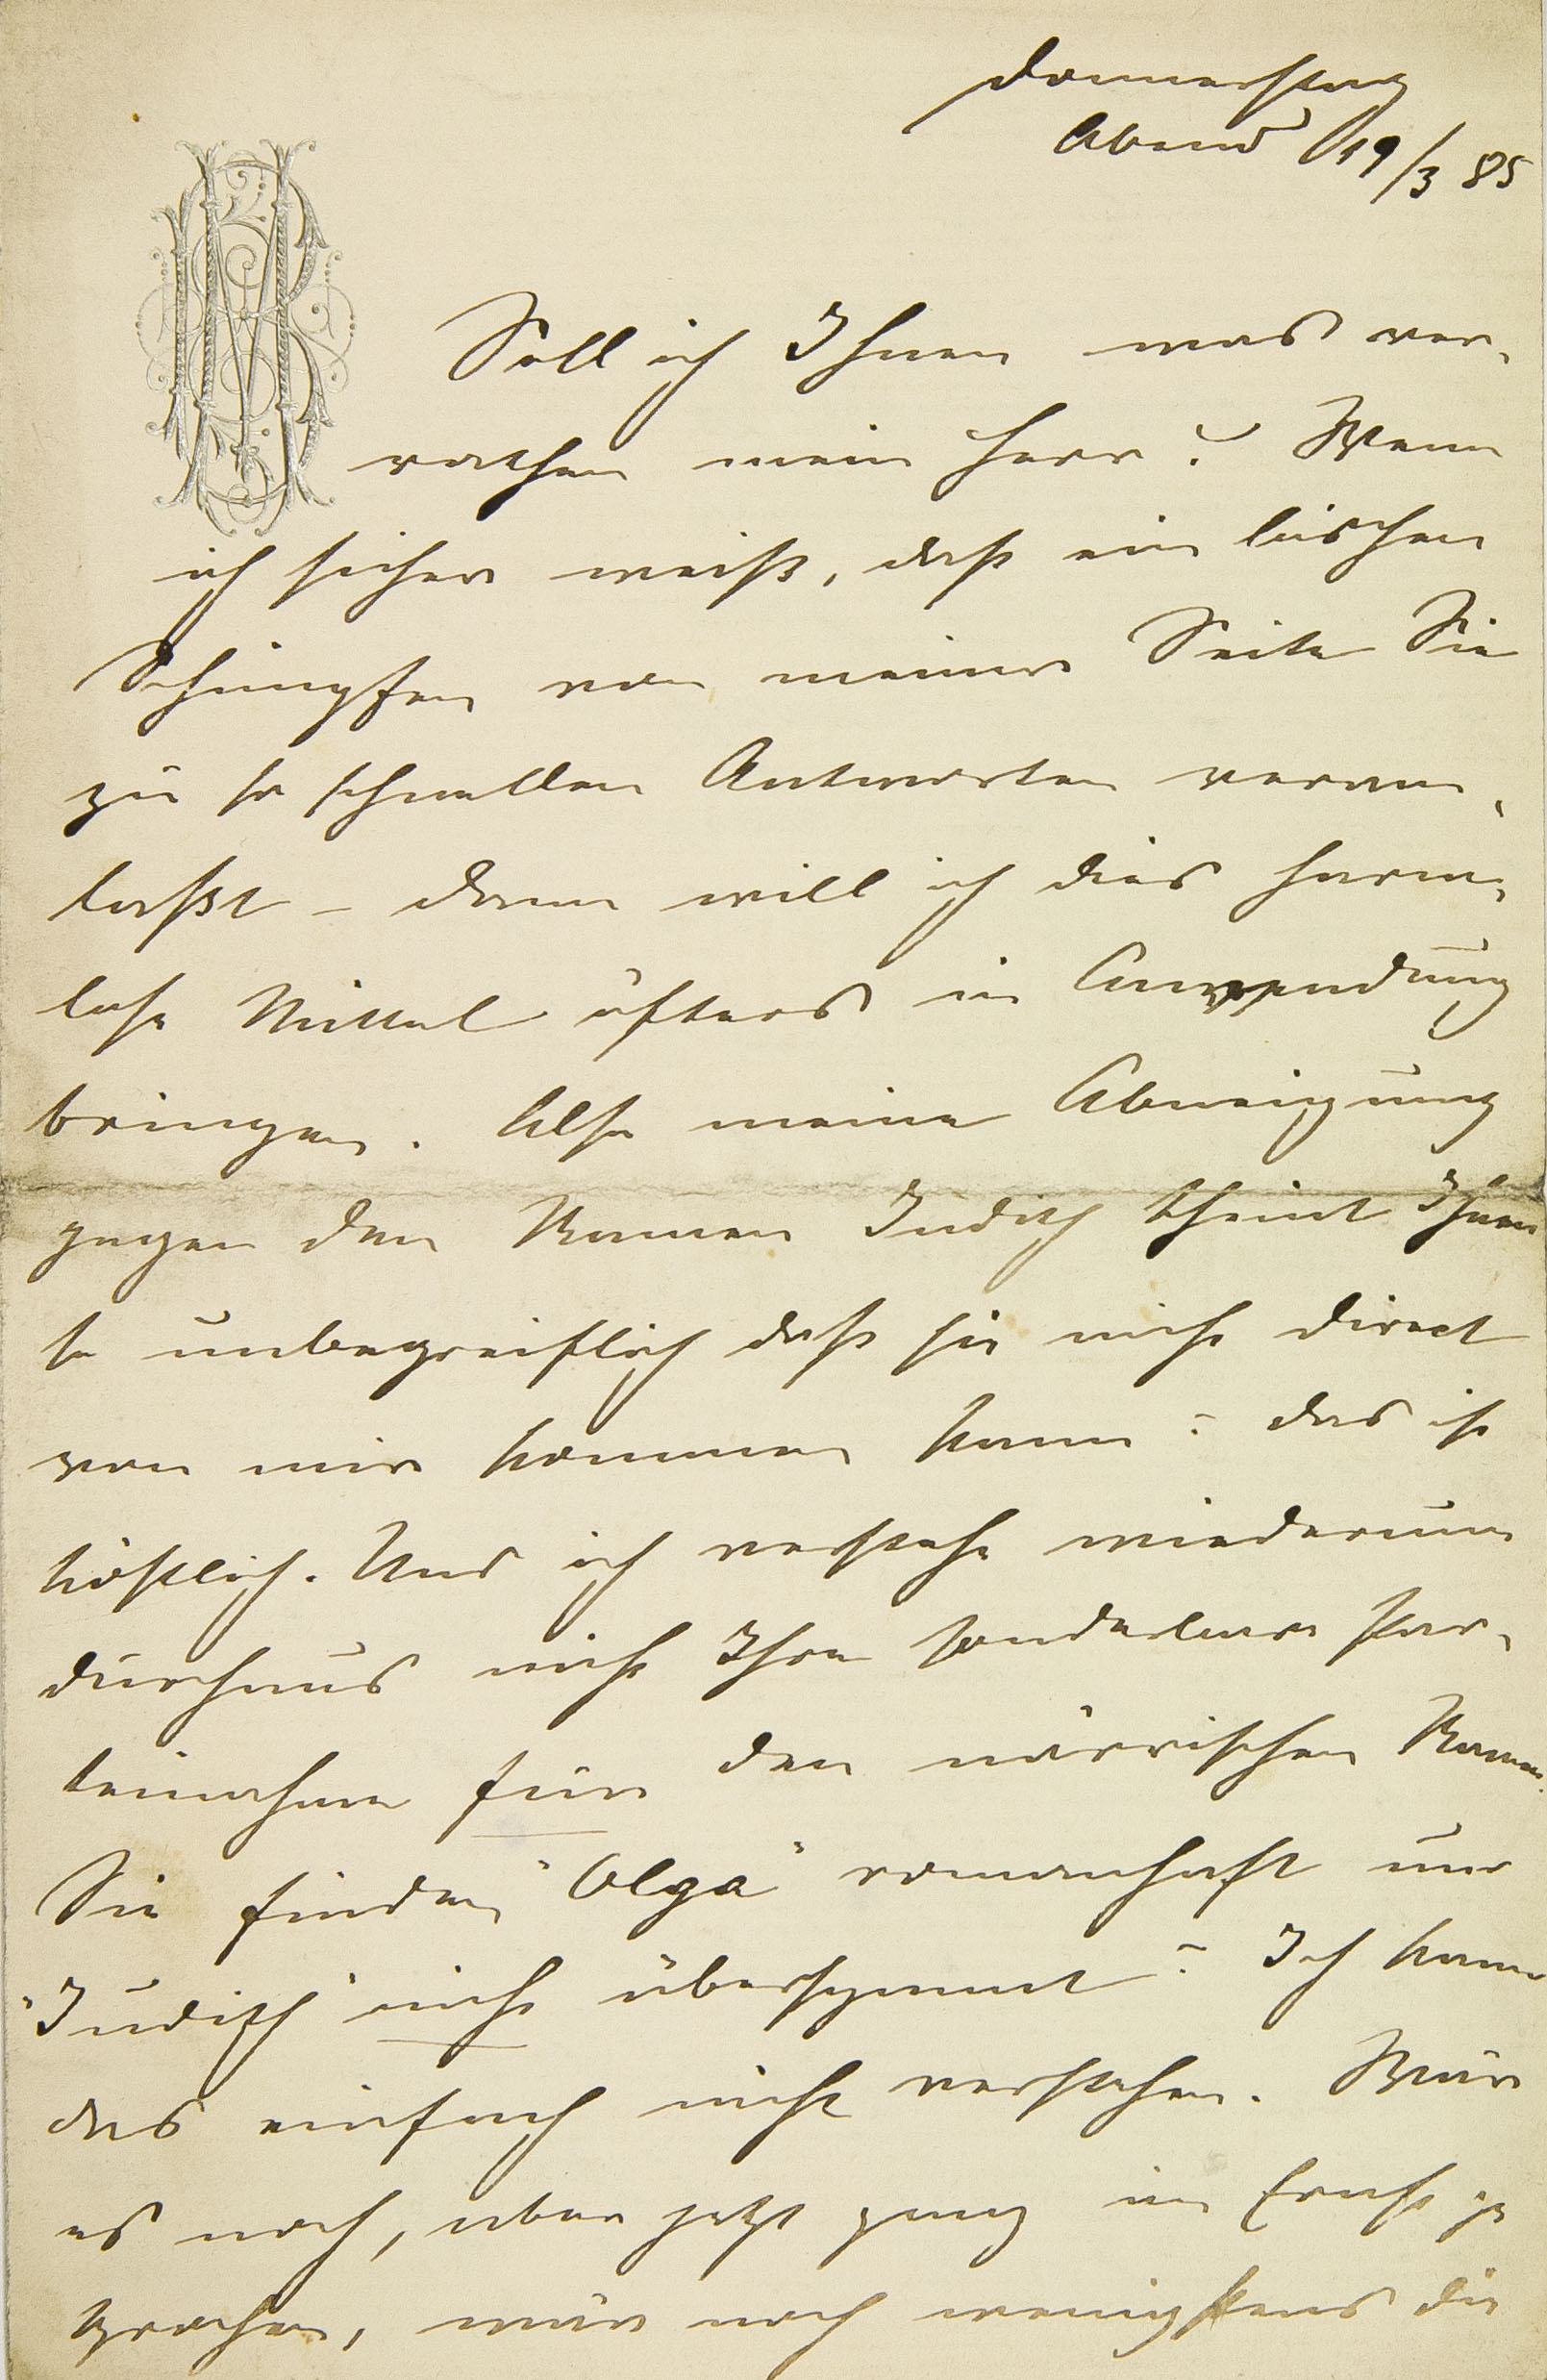 Donnerstag
Abend 19/3 85
Soll ich Ihnen was ver-
rathen mein Herr? Wenn
ich sicher weiß, daß ein bischen
Schimpfen von meiner Seite Sie
zu so schnellen Antworten veran-
laßt – dann will ich dies harm-
lose Mittel öfters in Anwendung
bringen. Also meine Abneigung
gegen den Namen Judith scheint Ihnen
so unbegreiflich daß sie nicht direct
von mir kommen kann? das ist
köstlich. Und ich verstehe wiederum
durchaus nicht Ihre sonderbare Par-
teinahme für den närrischen Namen.
Sie finden "Olga" romanhaft und
"Judith" nicht überspannt? Ich kann
das einfach nicht verstehen. Wär
es noch, aber jetzt ganz im Ernst ge
sprochen, wär noch wenigstens die